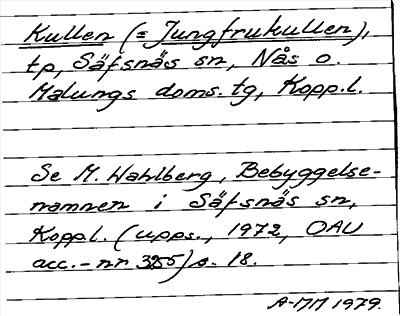 Kullen (= Jungfrukullen),
tp, Säfsnäs sn, Nås o.
Malungs doms. tg, Kopp.l.
Se M. Wahlberg, Bebyggelse-
namnen i Säfsnäs sn,
Koppl. (upps., 1972, OAU
acc.-nr 3255) s. 18.
A-MM 1979.